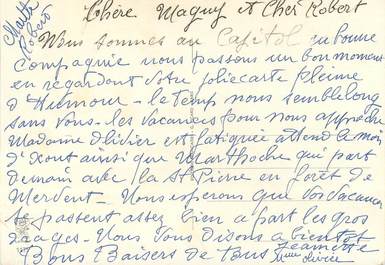 Chère Maguy et Cher Robert
Nous sommes au Capitol en bonne
compagnie nous passons un bon moment
en regardant votre jolie carte pleine
d'Humour - le temp nous semble long
sans vous - les vacances pour nous approche
Madame Olivier est fatiguée attend le moi
d'Xout ainsi que Marthoche qui part
demain avec la St Pierre en forêt de
Mervent - Nous esperons que vos vacances
se passent assez bien a part les gros
orages - Nous vous disons a bientot
Bons Baisers de tous Jeannette
Mme Olivier